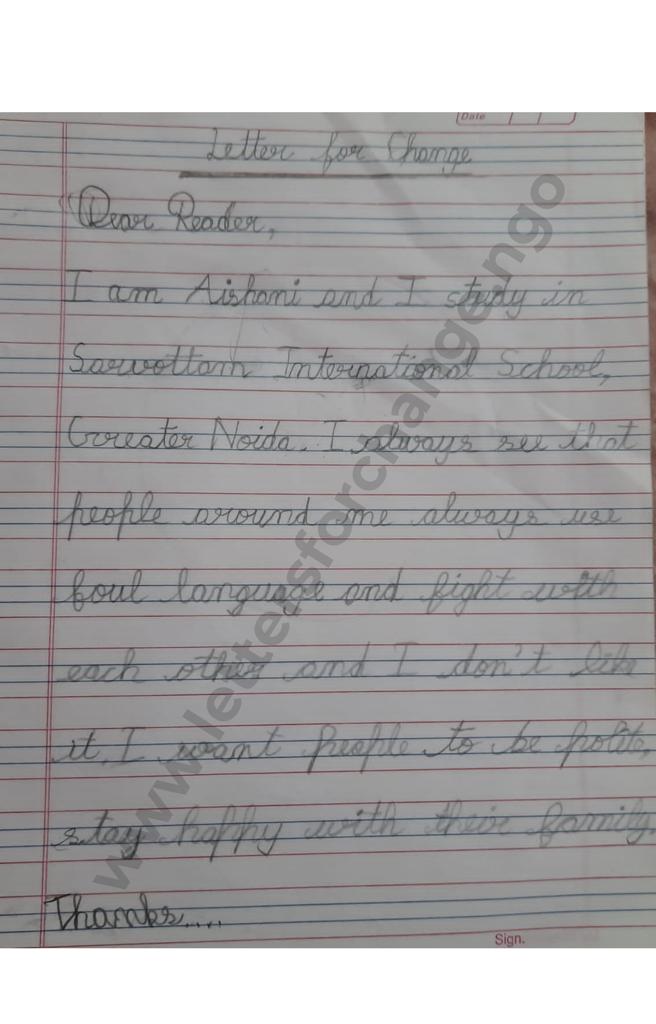 Date
Letter for Change
"Dear Reader,
I am Aishani and I study in
Sarvottam International School,
Greater Noida. I always see that
people around me always use
foul language and fight with
each other and I don't like
it. I want people to be polite,
stay happy with their family.
Thanks....
Sign.
www.lettersforchange.ngo